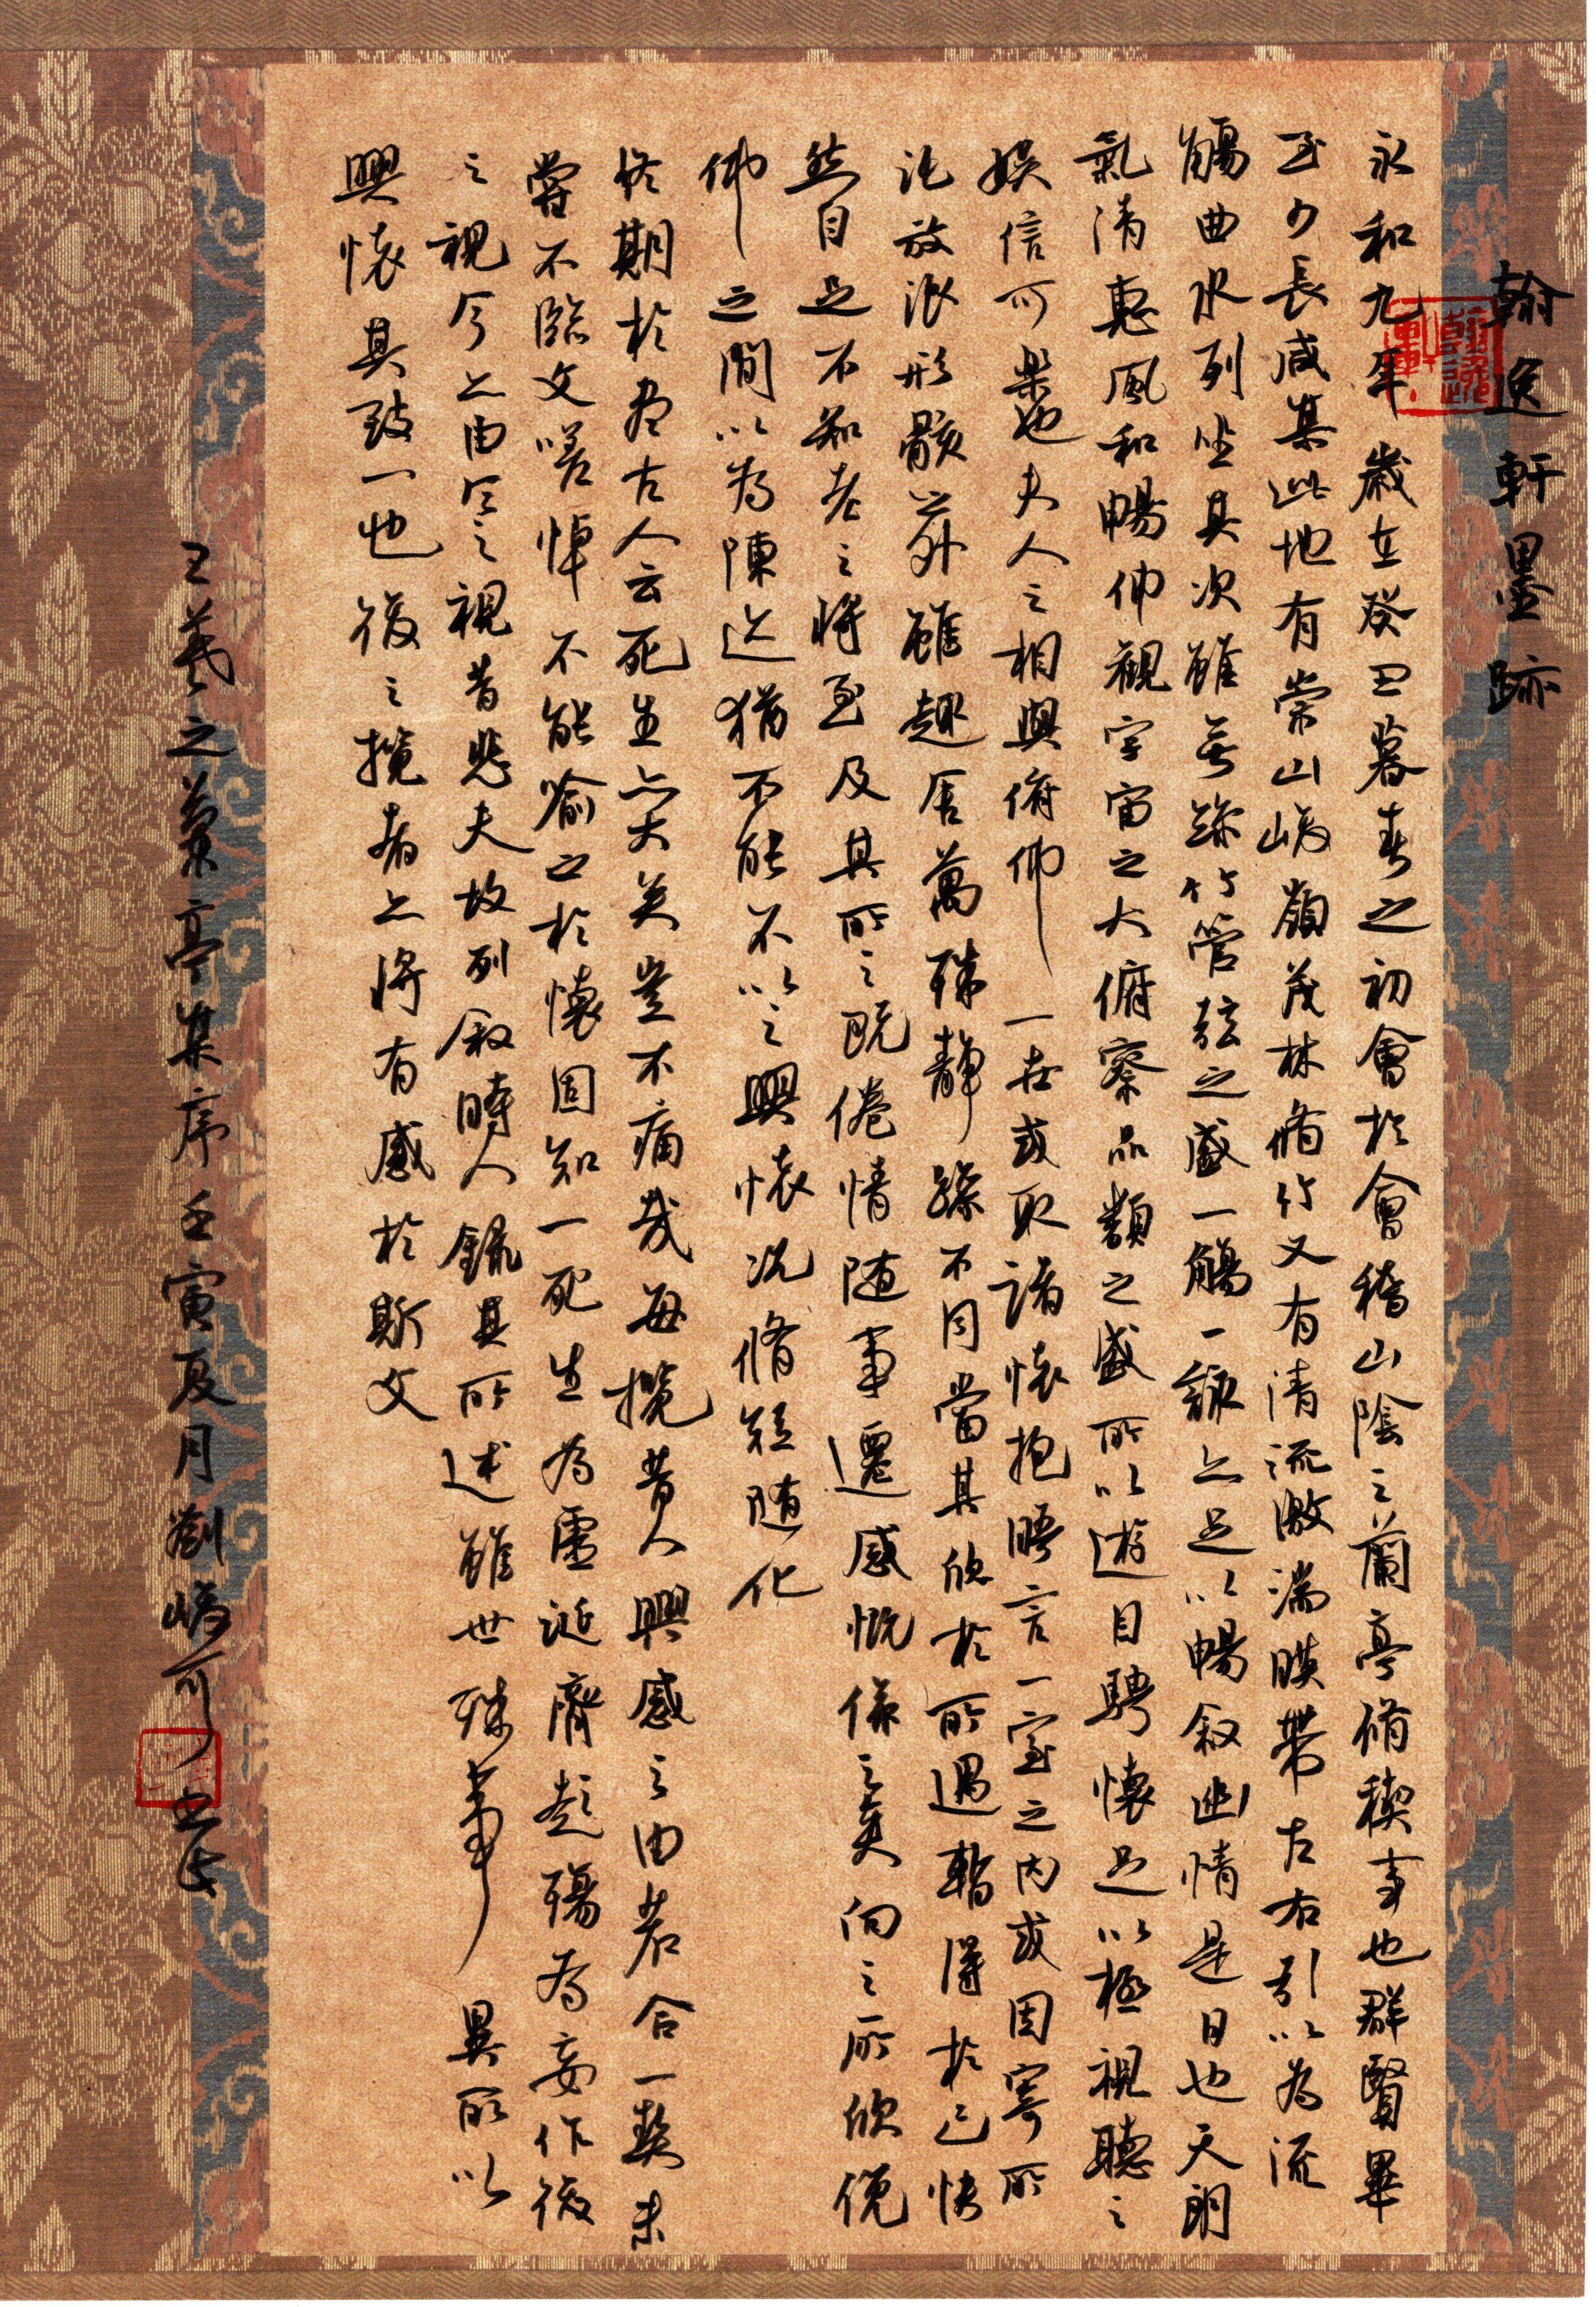 翰逸軒墨跡
永和九年歲在癸丑暮春之初會於會稽山陰之蘭亭脩稧事也群賢畢
至少長咸集此地有崇山峻嶺茂林脩竹又有清流激湍暎帶左右引以為流
觴曲水列坐其次雖無絲竹管弦之盛一觴一詠亦足以暢敘幽情是日也天朗
氣清惠風和暢仰觀宇宙之大俯察品類之盛所以遊目騁懷足以極視聽之
娛信可樂也夫人之相與俯仰一世或取諸懷抱晤言一室之內或因寄所
託放浪形骸之外雖趣舍萬殊靜躁不同當其欣於所遇暫得於己快
然自足不知老之將至及其所之既倦情隨事遷感慨係之矣向之所欣俛
仰之間以為陳迹猶不能不以之興懷況脩短隨化
終期於盡古人云死生亦大矣豈不痛哉每攬昔人興感之由若合一契未
嘗不臨文嗟悼不能喻之於懷固知一死生為虛誕齊彭殤為妄作後
之視今亦由今之視昔悲夫故列敘時人錄其所述雖世殊事異所以
興懷其致一也後之攬者亦將有感於斯文
王羲之蘭亭集序壬寅夏月劉峻可